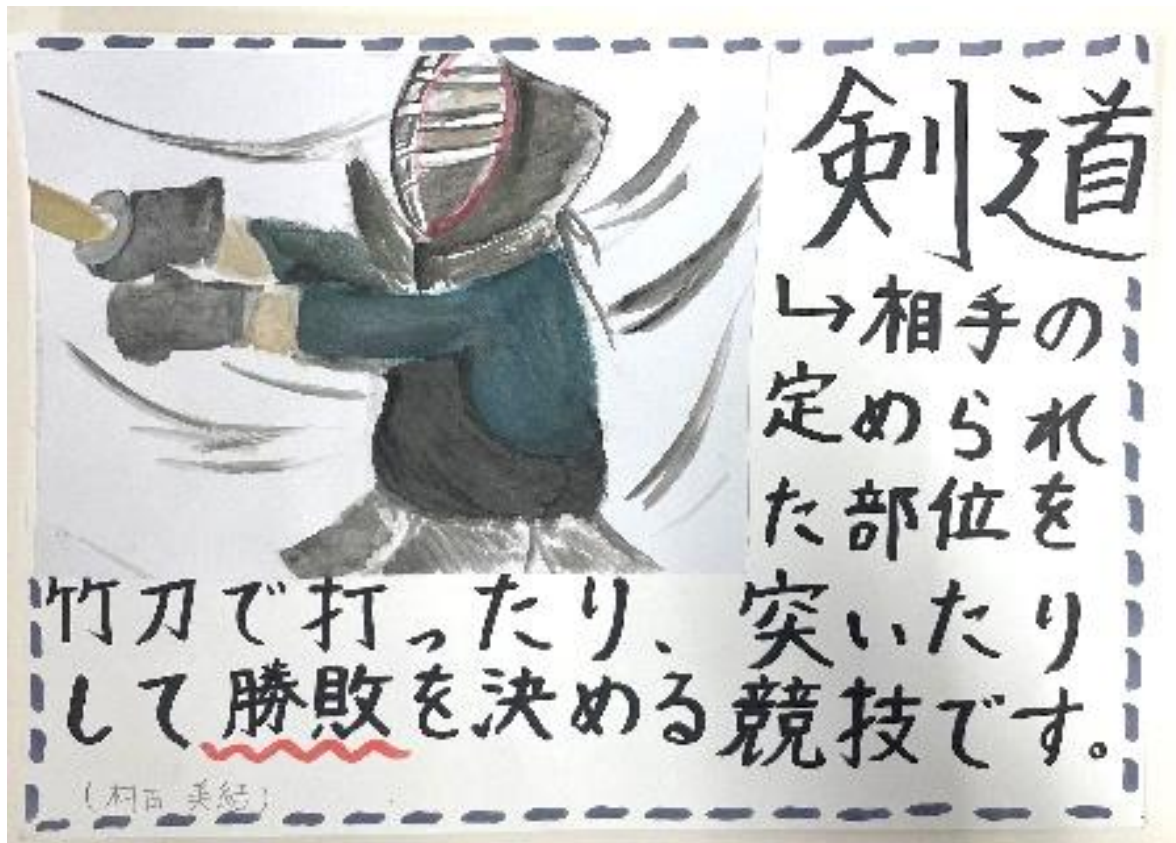 剣道
↳相手の
定められ
た部位を
竹刀で打ったり、突いたり
して勝敗を決める競技です。